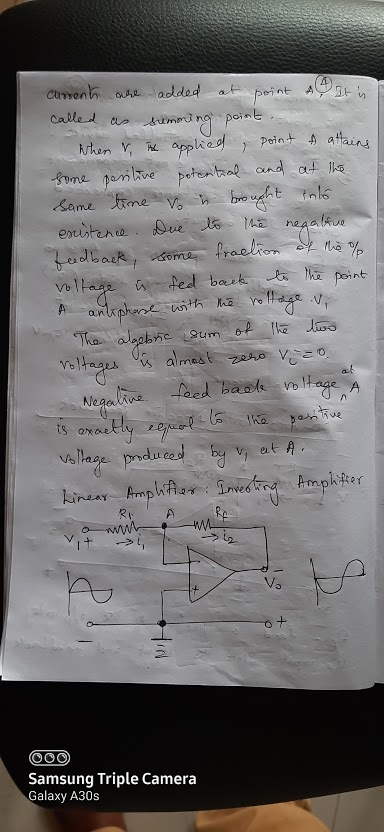 ④
currents are added at point A, It is
called as summing point.
When V₁ is applied, point A attains
some positive potential and at the
same time Vo is brought into
existence. Due to the negative
feedback, some fraction of the o/p
voltage is fed back to the point
A antiphase with the voltage V₁
The algebraic sum of the two
voltages is almost zero Vi = 0.
Negative feed back voltage at A
is exactly equal to the positive
voltage produced by V₁ at A.
Linear Amplifier: Inverting Amplifier
R₁ A Rf
V₁ + → i₁ → i₂
- Vo
+
- +
Samsung Triple Camera
Galaxy A30s